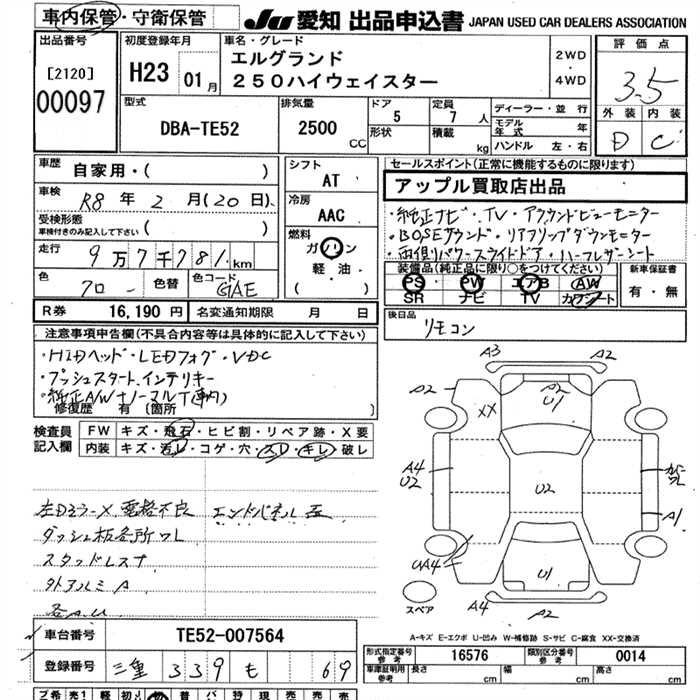 車内保管・守衛保管
JU 愛知 出品申込書 JAPAN USED CAR DEALERS ASSOCIATION
出品番号
[2120]
00097
初度登録年月
H23 01月
車名・グレード
エルグランド
250ハイウェイスター
2WD
・
4WD
評価点
3.5
外装 内装
D C
型式
DBA-TE52
排気量
2500 CC
ドア
5
形状
定員
7 人
積載 kg
ディーラー・並行
モデル年式 年
ハンドル 左・右
車歴
自家用・( )
車検
R8 年 2 月(20日)
受検形態
車検付きのみ記入して下さい ( )
走行
9万7千781 km
色
クロー
色替
色コード
GAE
シフト
AT
冷房
AAC
燃料
ガソリン
軽・油
( )
セールスポイント(正常に機能するものに限ります)
アップル買取店出品
・純正ナビ・TV・アラウンドビューモニター
・BOSEサウンド・リアフリップダウンモニター
・両側パワースライドドア・ハーフレザーシート
装備品(純正品に限り○をつけてください)
PS PW エアB AW
SR ナビ TV カワシート
新車保証書
有・無
R券 16,190 円 名変通知期限 月 日
後日品
リモコン
注意事項申告欄(不具合内容等は具体的に記入して下さい)
・HIDヘッド・LEDフォグ・VDC
・プッシュスタート.インテリキー
・純正A/W+ノーマルT(車内)
修復歴 有 〔箇所 〕
検査員記入欄
FW キズ・飛石・ヒビ割・リペア跡・X要
内装 キズ・汚レ・コゲ・穴・スレ・キレ・破レ
左Dミラー×、電格不良 エンドパネル歪
ダッシュ板各所ワレ
スタッドレスナ
外アルミA
各A.U
A3
A2
A2
A2
U1
A2
XX
A4
U2
U2
カバーワレ
A1
UA4
U1
スペア
A4
A2
A-キズ E-エクボ U-凹み W-補修跡 S-サビ C-腐食 XX-交換済
車台番号 TE52-007564
登録番号 三重 339 も 69
型式指定番号 参考 16576 類別区分番号 参考 0014
車庫証明用 参考 長さ cm 幅 cm 高さ cm